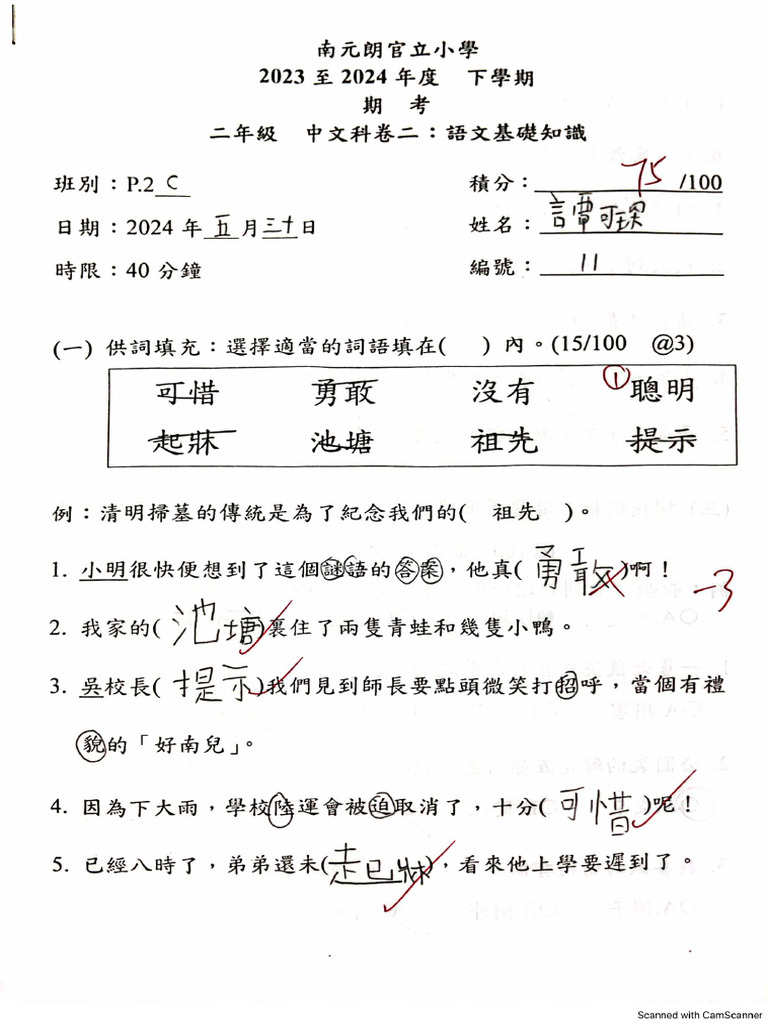 南元朗官立小學
2023 至 2024 年度 下學期
期 考
二年級 中文科卷二：語文基礎知識
班別：P.2 C 積分：75 /100
日期：2024 年 五 月 三十 日 姓名：譚可琛
時限：40 分鐘 編號：11
(一) 供詞填充：選擇適當的詞語填在( ) 內。(15/100 @3)
可惜 勇敢 沒有 ① 聰明
起牀 池塘 祖先 提示
例：清明掃墓的傳統是為了紀念我們的( 祖先 )。
1. 小明很快便想到了這個謎語的答案，他真( 勇敢 )啊！ -3
2. 我家的( 池塘 )裏住了兩隻青蛙和幾隻小鴨。
3. 吳校長( 提示 )我們見到師長要點頭微笑打招呼，當個有禮
貌的「好南兒」。
4. 因為下大雨，學校陸運會被迫取消了，十分( 可惜 )呢！
5. 已經八時了，弟弟還未( 起牀 )，看來他上學要遲到了。
Scanned with CamScanner